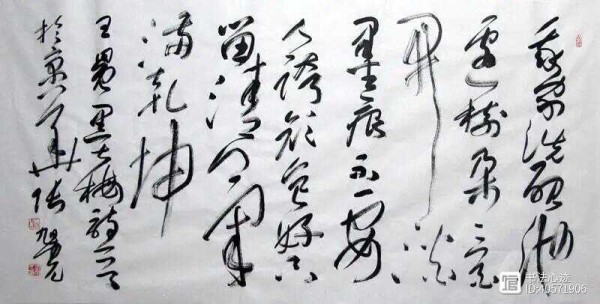 我家洗砚池
边树朵朵花
开淡
墨痕不要
人誇颜色好只
留清气
满乾坤
王冕墨梅诗一首
於京华张旭光
书法心迹
ID:40571906